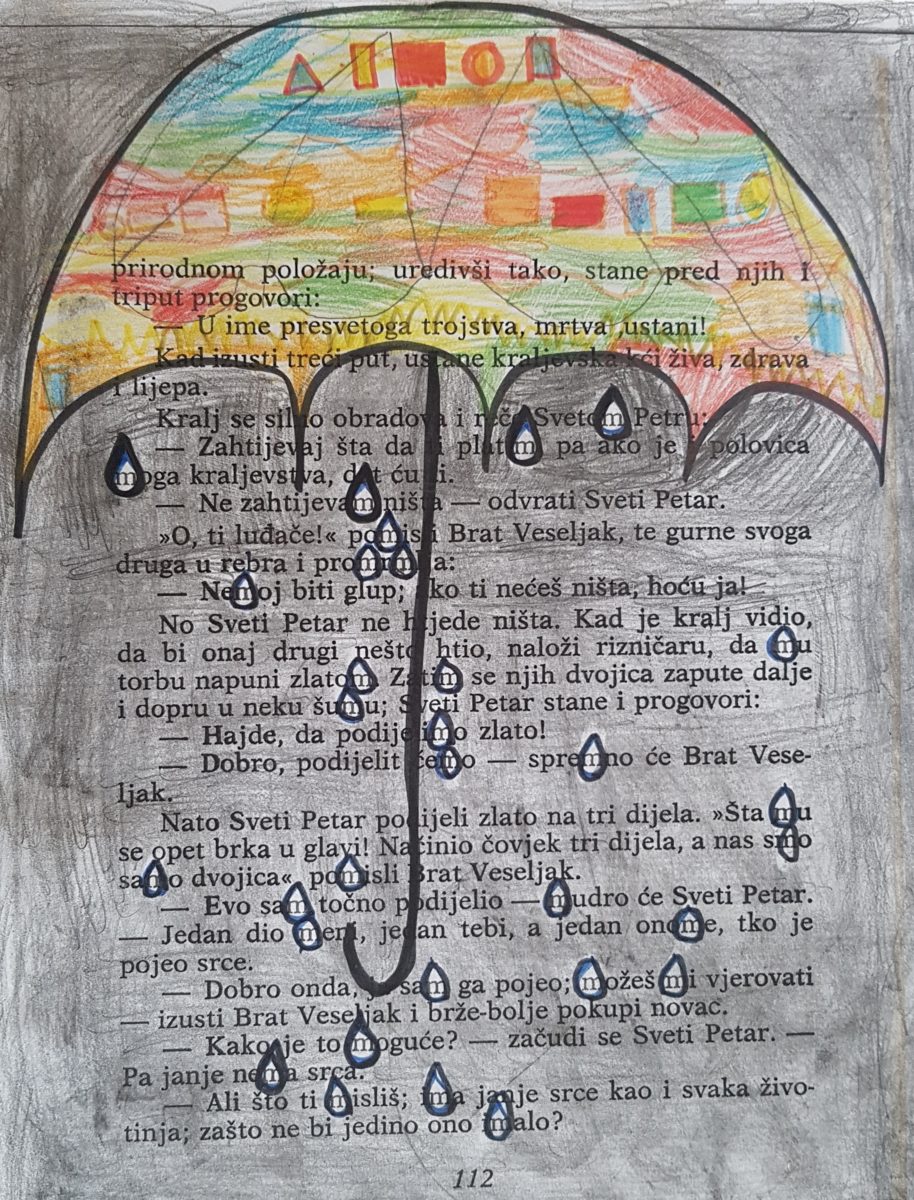 prirodnom položaju; uredivši tako, stane pred njih i
triput progovori:
— U ime presvetoga trojstva, mrtva ustani!
Kad izusti treći put, ustane kraljevska kći živa, zdrava
i lijepa.
Kralj se silno obradova i reče Svetom Petru:
— Zahtijevaj šta da ti platim pa ako je i polovica
moga kraljevstva, dat ću ti.
— Ne zahtijevam ništa — odvrati Sveti Petar.
»O, ti luđače!« pomisli Brat Veseljak, te gurne svoga
druga u rebra i promrmlja:
— Nemoj biti glup; ako ti nećeš ništa, hoću ja!
No Sveti Petar ne htjede ništa. Kad je kralj vidio,
da bi onaj drugi nešto htio, naloži rizničaru, da mu
torbu napuni zlatom. Zatim se njih dvojica zapute dalje
i dopru u neku šumu; Sveti Petar stane i progovori:
— Hajde, da podijelimo zlato!
— Dobro, podijelit ćemo — spremno će Brat Vese-
ljak.
Nato Sveti Petar podijeli zlato na tri dijela. »Šta mu
se opet brka u glavi! Načinio čovjek tri dijela, a nas smo
samo dvojica«, pomisli Brat Veseljak.
— Evo sam točno podijelio — mudro će Sveti Petar.
— Jedan dio meni, jedan tebi, a jedan onome, tko je
pojeo srce.
— Dobro onda, ja sam ga pojeo; možeš mi vjerovati
— izusti Brat Veseljak i brže-bolje pokupi novac.
— Kako je to moguće? — začudi se Sveti Petar. —
Pa janje nema srca.
— Ali što ti misliš; ima janje srce kao i svaka živo-
tinja; zašto ne bi jedino ono imalo?
112